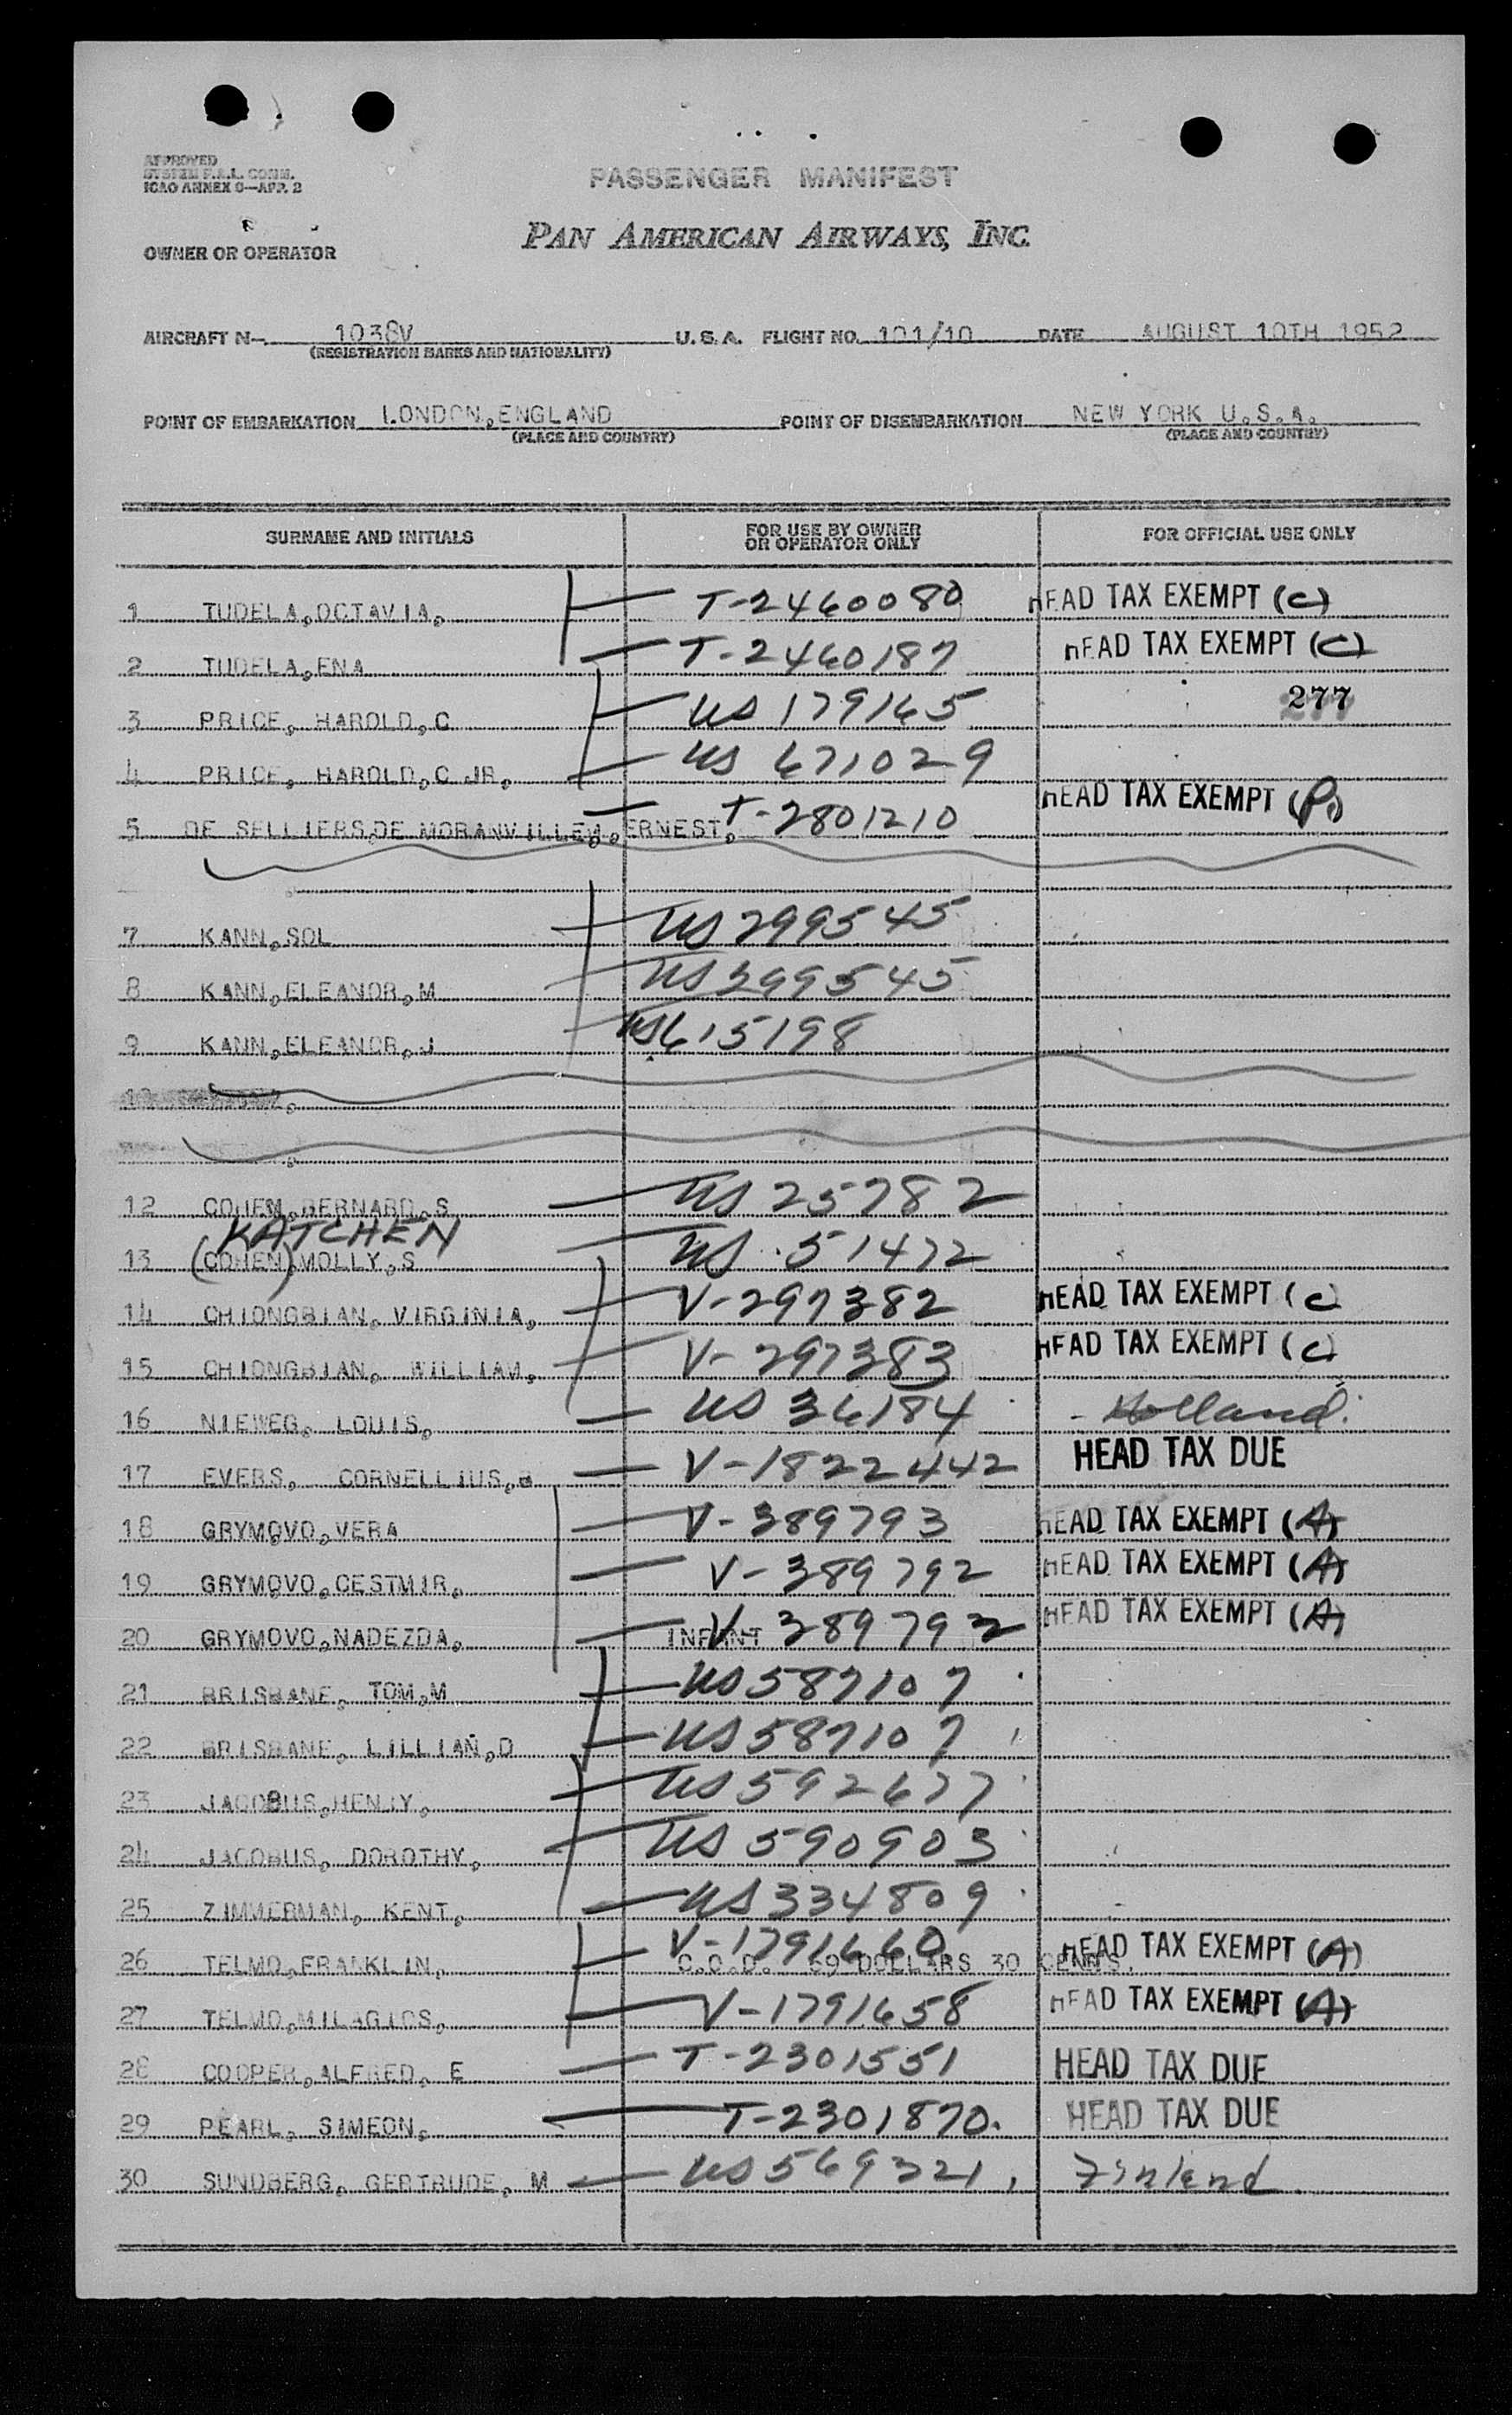 APPROVED
SYSTEM F.A.L. COMM.
ICAO ANNEX 9—APP. 2
PASSENGER MANIFEST
PAN AMERICAN AIRWAYS, INC.
OWNER OR OPERATOR
AIRCRAFT N- 1038V U. S. A. FLIGHT NO. 101/10 DATE AUGUST 10TH 1952
(REGISTRATION MARKS AND NATIONALITY)
POINT OF EMBARKATION LONDON,ENGLAND POINT OF DISEMBARKATION NEW YORK U.S.A.
(PLACE AND COUNTRY) (PLACE AND COUNTRY)
SURNAME AND INITIALS FOR USE BY OWNER OR OPERATOR ONLY FOR OFFICIAL USE ONLY
1 TUDELA,OCTAVIA, T-2460080 HEAD TAX EXEMPT (C)
2 TUDELA,ENA T-2460187 HEAD TAX EXEMPT (C)
3 PRICE, HAROLD,C US 179165 277
4 PRICE, HAROLD,C JR, US 671029
5 DE SELLIERS,DE MORANVILLE, ,ERNEST, T-2801210 HEAD TAX EXEMPT (P)
7 KANN,SOL US 299545
8 KANN,ELEANOR,M US 299545
9 KANN,ELEANOR,J US 615198
12 COHEN,BERNARD,S US 25782
KATCHEN
13 (COHEN) MOLLY,S US 51472
14 CHIONGBIAN, VIRGINIA, V-297382 HEAD TAX EXEMPT (C)
15 CHIONGBIAN, WILLIAM, V-297383 HEAD TAX EXEMPT (C)
16 NIEWEG, LOUIS, US 36184 - Holland.
17 EVERS, CORNELLIUS, V-1822442 HEAD TAX DUE
18 GRYMOVO,VERA V-389793 HEAD TAX EXEMPT (A)
19 GRYMOVO,CESTMIR, V-389792 HEAD TAX EXEMPT (A)
20 GRYMOVO,NADEZDA, INFANT V-389793 HEAD TAX EXEMPT (A)
21 BRISBANE, TOM,M US 587107
22 BRISBANE, LILLIAN,D US 587107
23 JACOBUS,HENJY, US 592677
24 JACOBUS, DOROTHY, US 590903
25 ZIMMERMAN, KENT, US 334809
26 TELMO,FRANKLIN, V-1791660 HEAD TAX EXEMPT (A)
C.O.D. 69 DOLLARS 30 CENTS.
27 TELMO,MILAGIOS, V-1791658 HEAD TAX EXEMPT (A)
28 COOPER,ALFRED, E T-2301551 HEAD TAX DUE
29 PEARL, SIMEON, T-2301870. HEAD TAX DUE
30 SUNDBERG, GERTRUDE, M US 569321, Finland